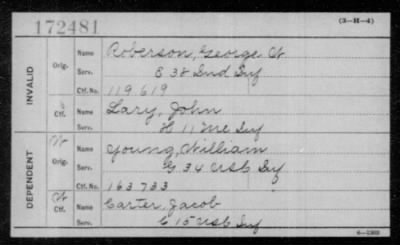 172481 (3-H-4)
INVALID
Orig.
Name Roberson, George W
Serv. E 38 Ind Inf
Ctf. No. 119.619
Ctf.
Name Lary, John
Serv. H 11 Me Inf
DEPENDENT
Orig.
Name Young, William
Serv. G 34 USC Inf
Ctf. No. 163733
Ctf.
Name Carter, Jacob
Serv. C 15 USC Inf